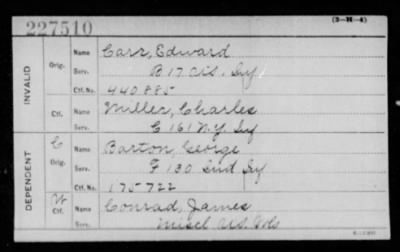 227510
(3-H-4)
INVALID
Orig.
Name Carr, Edward
Serv. B 17 Wis. Inf
Ctf. No. 440885
Ctf.
Name Miller, Charles
Serv. C 161 N.Y. Inf
DEPENDENT
C
Orig.
Name Barton, George
Serv. F 130 Ind Inf
Ctf. No. 175722
W
Ctf.
Name Conrad, James
Serv. Miscl U.S. Vols